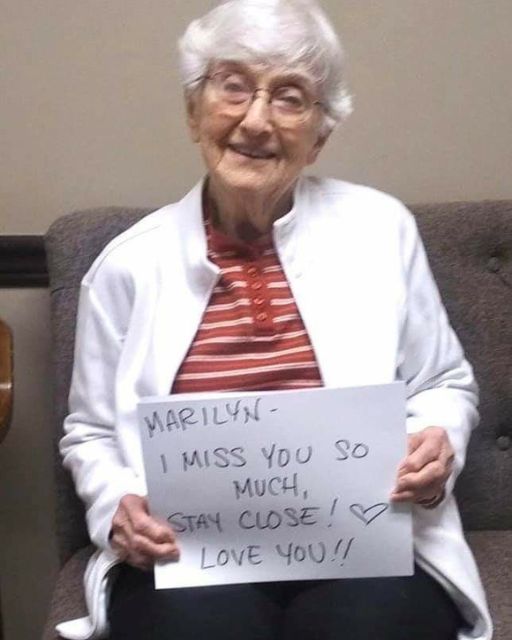 MARILYN -
I MISS YOU SO
MUCH,
STAY CLOSE! ♡
LOVE YOU!!